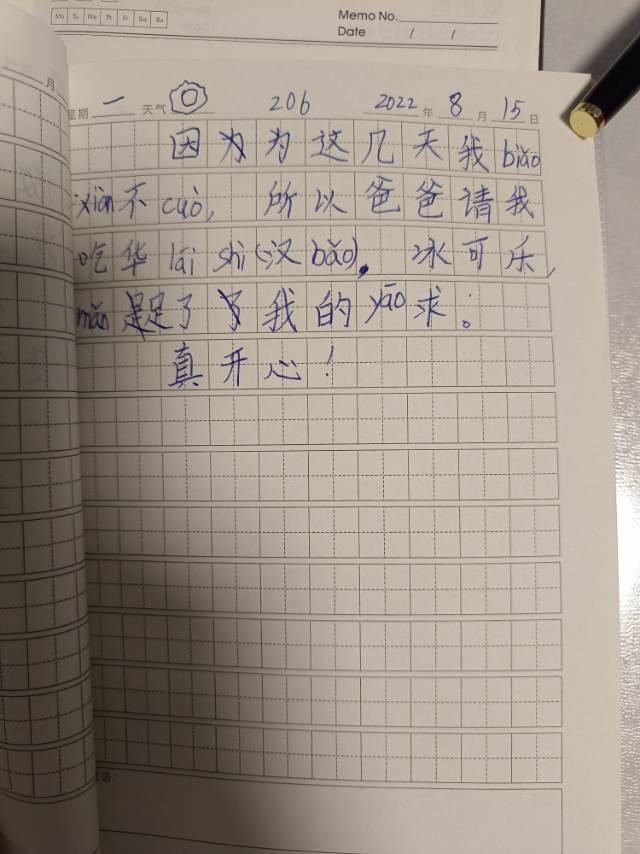 月
Mo Tu We Th Fr Sa Su
Memo No.
Date / /
星期 一 天气 206 2022 年 8 月 15 日
因为为这几天我biǎo
xiàn不cuò, 所以爸爸请我
吃华lái shì(汉bǎo), 冰可乐,
mǎn足了我的yāo求。
真开心!
语: